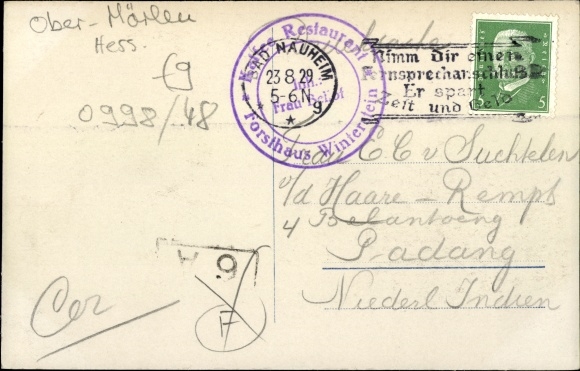 Ober-Mörlen
Hess.
0998/48
Kaffee Restaurant
Frau
Forsthaus Winterstein
BAD NAUHEIM
23 8 29
5-6 N
* g
Nimm Dir einen
Fernsprechanschluß
Er spart
Zeit und Geld
5
C C v Suchtelen
v/d Haare - Remps
4 Belantoeng
Padang
Niederl Indien
F